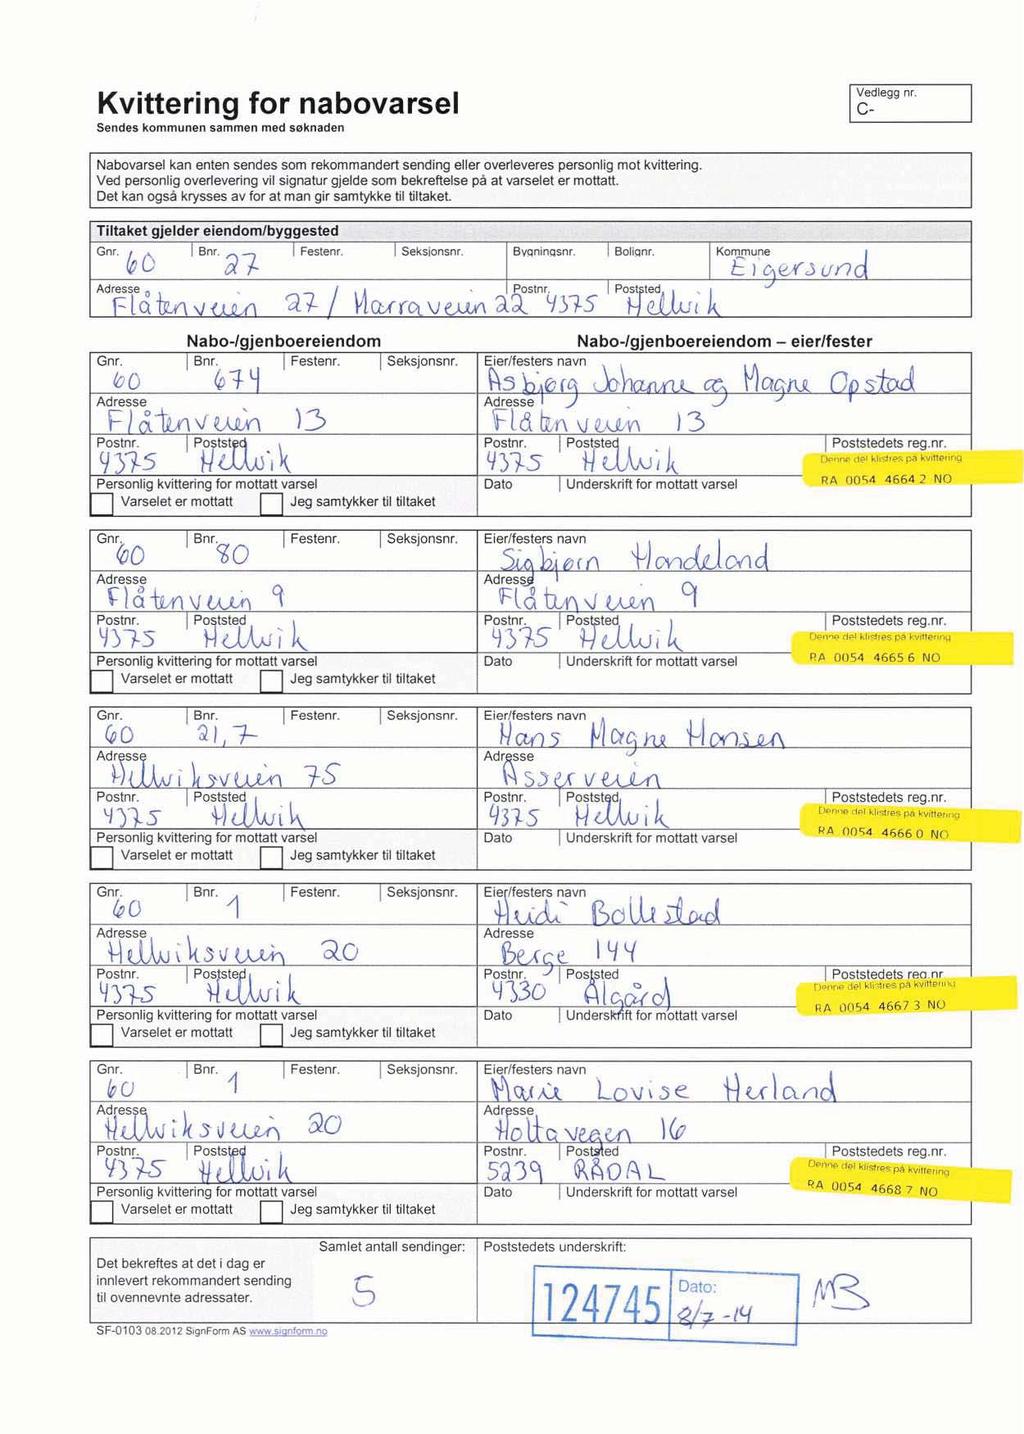 Kvittering for nabovarsel
Sendes kommunen sammen med søknaden
Vedlegg nr.
C-
Nabovarsel kan enten sendes som rekommandert sending eller overleveres personlig mot kvittering.
Ved personlig overlevering vil signatur gjelde som bekreftelse på at varselet er mottatt.
Det kan også krysses av for at man gir samtykke til tiltaket.
Tiltaket gjelder eiendom/byggested
Gnr. Bnr. Festenr. Seksjonsnr. Bygningsnr. Bolignr. Kommune
60 27 Eigersund
Adresse Postnr. Poststed
Flåtenveien 27 / Marraveien 22 4375 Hellvik
Nabo-/gjenboereiendom Nabo-/gjenboereiendom – eier/fester
Gnr. Bnr. Festenr. Seksjonsnr. Eier/festers navn
60 674 Asbjørg Johanne og Magne Opstad
Adresse Adresse
Flåtenveien 13 Flåtenveien 13
Postnr. Poststed Postnr. Poststed Poststedets reg.nr.
4375 Hellvik 4375 Hellvik Denne del klistres på kvittering
Personlig kvittering for mottatt varsel Dato Underskrift for mottatt varsel RA 0054 4664 2 NO
Varselet er mottatt Jeg samtykker til tiltaket
Gnr. Bnr. Festenr. Seksjonsnr. Eier/festers navn
60 80 Sigbjørn Handeland
Adresse Adresse
Flåtenveien 9 Flåtenveien 9
Postnr. Poststed Postnr. Poststed Poststedets reg.nr.
4375 Hellvik 4375 Hellvik Denne del klistres på kvittering
Personlig kvittering for mottatt varsel Dato Underskrift for mottatt varsel RA 0054 4665 6 NO
Varselet er mottatt Jeg samtykker til tiltaket
Gnr. Bnr. Festenr. Seksjonsnr. Eier/festers navn
60 21,7 Hans Magne Hansen
Adresse Adresse
Hellviksveien 75 Asserveien
Postnr. Poststed Postnr. Poststed Poststedets reg.nr.
4375 Hellvik 4375 Hellvik Denne del klistres på kvittering
Personlig kvittering for mottatt varsel Dato Underskrift for mottatt varsel RA 0054 4666 0 NO
Varselet er mottatt Jeg samtykker til tiltaket
Gnr. Bnr. Festenr. Seksjonsnr. Eier/festers navn
60 1 Heidi Bollestad
Adresse Adresse
Hellviksveien 20 Berge 144
Postnr. Poststed Postnr. Poststed Poststedets reg.nr.
4375 Hellvik 4330 Ålgård Denne del klistres på kvittering
Personlig kvittering for mottatt varsel Dato Underskrift for mottatt varsel RA 0054 4667 3 NO
Varselet er mottatt Jeg samtykker til tiltaket
Gnr. Bnr. Festenr. Seksjonsnr. Eier/festers navn
60 1 Marie Lovise Herland
Adresse Adresse
Hellviksveien 20 Holtavegen 16
Postnr. Poststed Postnr. Poststed Poststedets reg.nr.
4375 Hellvik 5239 RÅDAL Denne del klistres på kvittering
Personlig kvittering for mottatt varsel Dato Underskrift for mottatt varsel RA 0054 4668 7 NO
Varselet er mottatt Jeg samtykker til tiltaket
Samlet antall sendinger: Poststedets underskrift:
Det bekreftes at det i dag er
innlevert rekommandert sending
til ovennevnte adressater.
5
124745 Dato: 8/7-14 MB
SF-0103 08.2012 SignForm AS www.signform.no